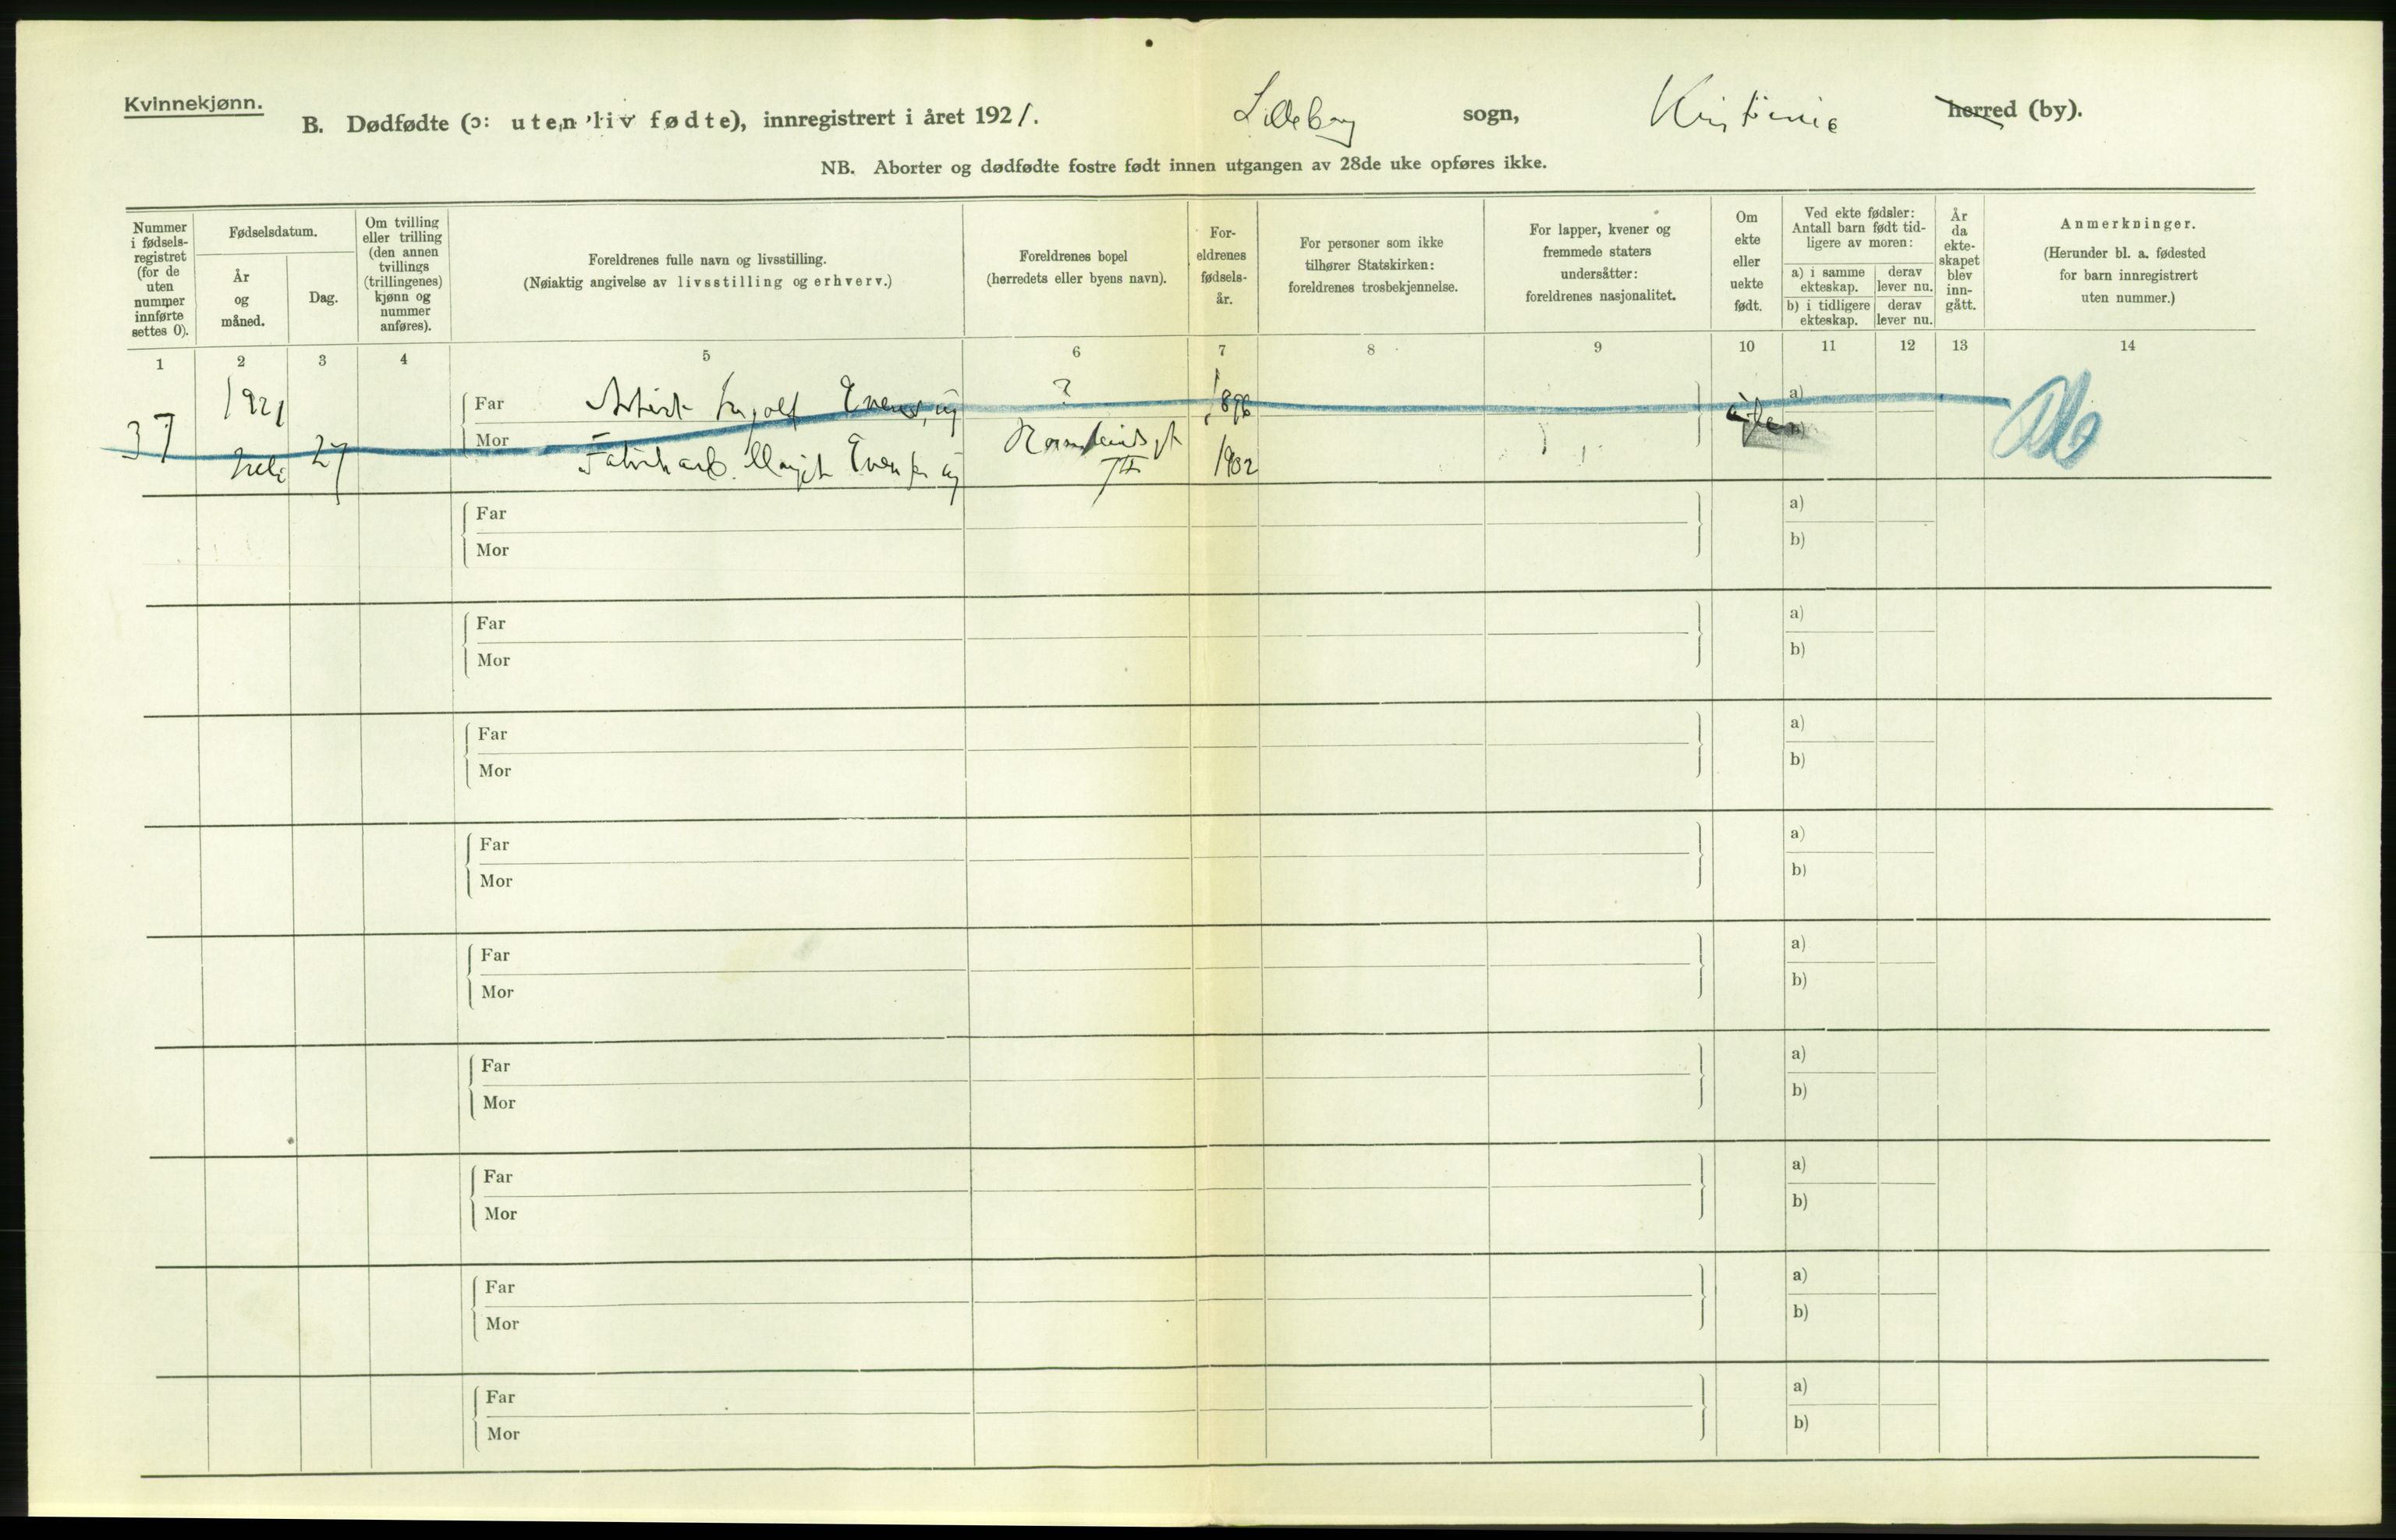 Kvinnekjønn.
B. Dødfødte (ɔ: uten liv fødte), innregistrert i året 1921. Lilleborg sogn, Kristiania herred (by).
NB. Aborter og dødfødte fostre født innen utgangen av 28de uke opføres ikke.
Nummer i fødsels-registret (for de uten nummer innførte settes 0).
Fødselsdatum.
År og måned.
Dag.
Om tvilling eller trilling (den annen tvillings (trillingenes) kjønn og nummer anføres).
Foreldrenes fulle navn og livsstilling.
(Nøiaktig angivelse av livsstilling og erhverv.)
Foreldrenes bopel
(herredets eller byens navn).
For-eldrenes fødsels-år.
For personer som ikke tilhører Statskirken: foreldrenes trosbekjennelse.
For lapper, kvener og fremmede staters undersåtter: foreldrenes nasjonalitet.
Om ekte eller uekte født.
Ved ekte fødsler: Antall barn født tid-ligere av moren:
a) i samme ekteskap.
derav lever nu.
b) i tidligere ekteskap.
derav lever nu.
År da ekte-skapet blev inn-gått.
Anmerkninger.
(Herunder bl. a. fødested for barn innregistrert uten nummer.)
1 2 3 4 5 6 7 8 9 10 11 12 13 14
1921 Far Ingolf ? 1896 a)
37 27 Mor 1902
Far a)
Mor b)
Far a)
Mor b)
Far a)
Mor b)
Far a)
Mor b)
Far a)
Mor b)
Far a)
Mor b)
Far a)
Mor b)
Far a)
Mor b)
Far a)
Mor b)